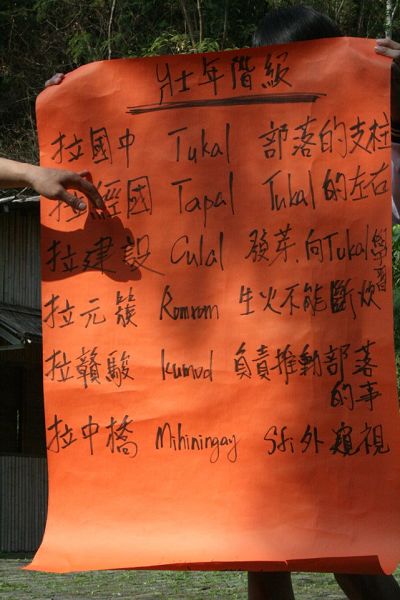 壯年階級
拉國中 Tukal 部落的支柱
拉經國 Tapal Tukal的左右
拉建設 Culal 發芽,向Tukal學習
拉元簇 Romrom 生火不能斷炊
拉贛駿 kumud 負責推動部落
的事
拉中橋 Mihiningay Sfi外窺視